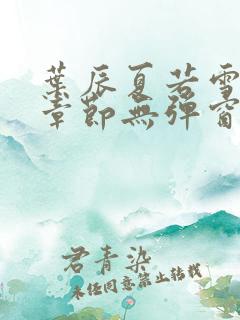 葉辰夏若雪
章節無彈窗
君青染
未经同意禁止转载